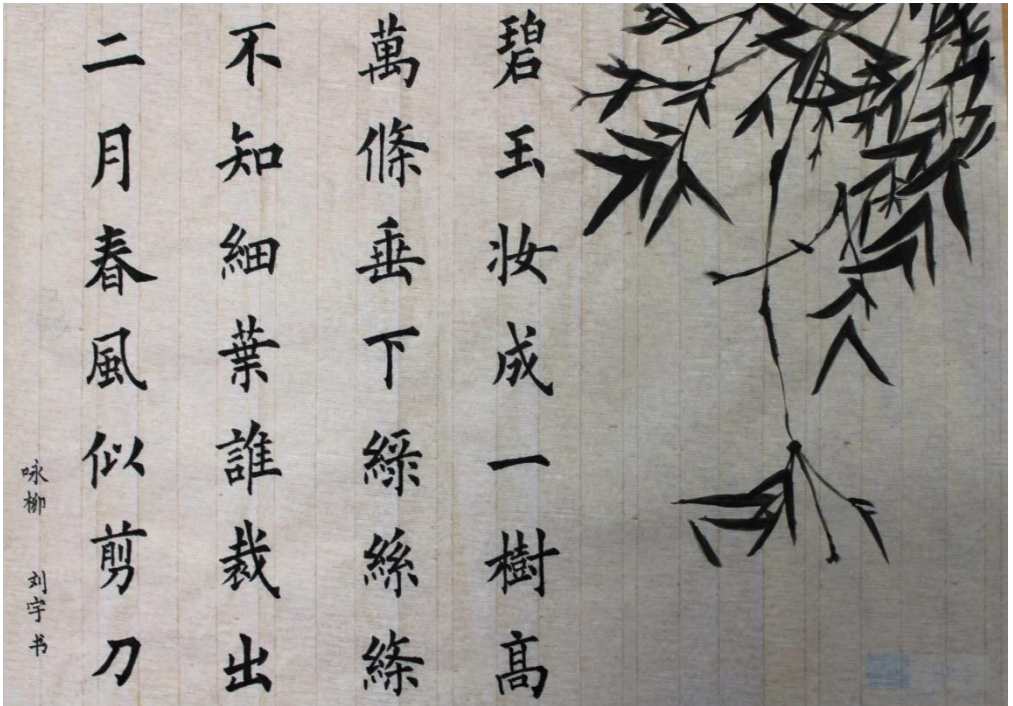 碧玉妝成一樹高
萬條垂下綠絲絛
不知細葉誰裁出
二月春風似剪刀
咏柳 刘宇书